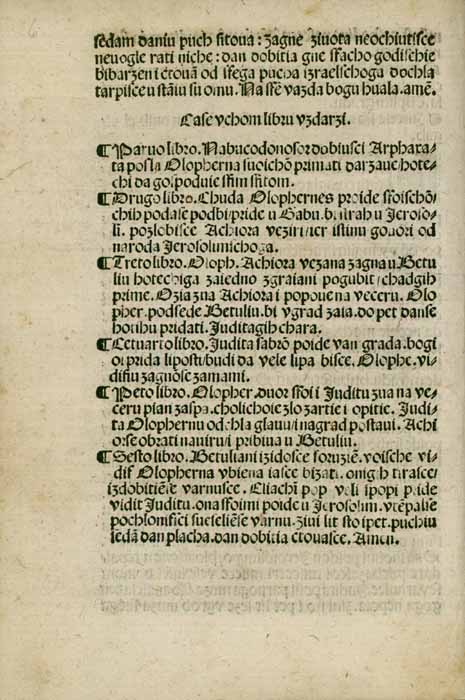 sedam daniu puch sitoua : zagne ziuota neochiutisce
neuogle rati niche : dan dobitia gne sfacho godischie
bi barzen i ctouan od sfega pucha izraelschoga dochla
tarpisce u staniu suomu. Na sfe vazda bogu huala. amē.
Caſe vchom libru vzdarzi.
¶ Paruo libro. Nabucodonosor dobiusci Arphaxa-
ta posla Olopherna suoichō primati darzaue / hote-
chi da go / poduie sfim sfitom.
¶ Drugo libro. Chuda Olophernes proide sfoischō /
chih podase podbi / pride u Gabu. b. strah u Jeroso-
li. pozlobisce Achiora vezir / ner istinu gouori od
naroda Jerosolimichoga.
¶ Treto libro. Oloph. Achiora vezana zagna u Betu
liu hotechiga zaiedno zgraiani pogubit / chadgih
prime. Ozia zua Achiora i popoue na veceru. Olo
pher podsede Betuliu. bi vgrad zaia. do pet danse
hotihu pridati. Juditagih chara.
¶ Cetuarto libro. Judita sabrō poide van grada. bogi
oi prida liposti / budi da vele lipa bisce. Olophe. vi-
difiu zagnose zamami.
¶ Peto libro. Olopher. duor sfoi i Juditu zua na ve-
ceru pian zaspa. cholichoie zlo zartie i opitie. Judi-
ta Olophernu odchla glauu / i nagrad postaui. Achi
orse obrati nauiru / i pribiua u Betuliu.
¶ Sesto libro. Betuliani izidosce soruziē. voische vi-
dif Olopherna vbiena iasce bizati. onigih tirasce /
izdobitiēse varnusce. Eliachī pop veli ipopi poide
vidit Juditu. ona sfoimi poide u Jerosolim. vtēpalie
pochlonifici sueseliēse varnu. ziui lit sto ipet. puchiu
sedā dan placha. dan dobitia ctouasce. Amen.